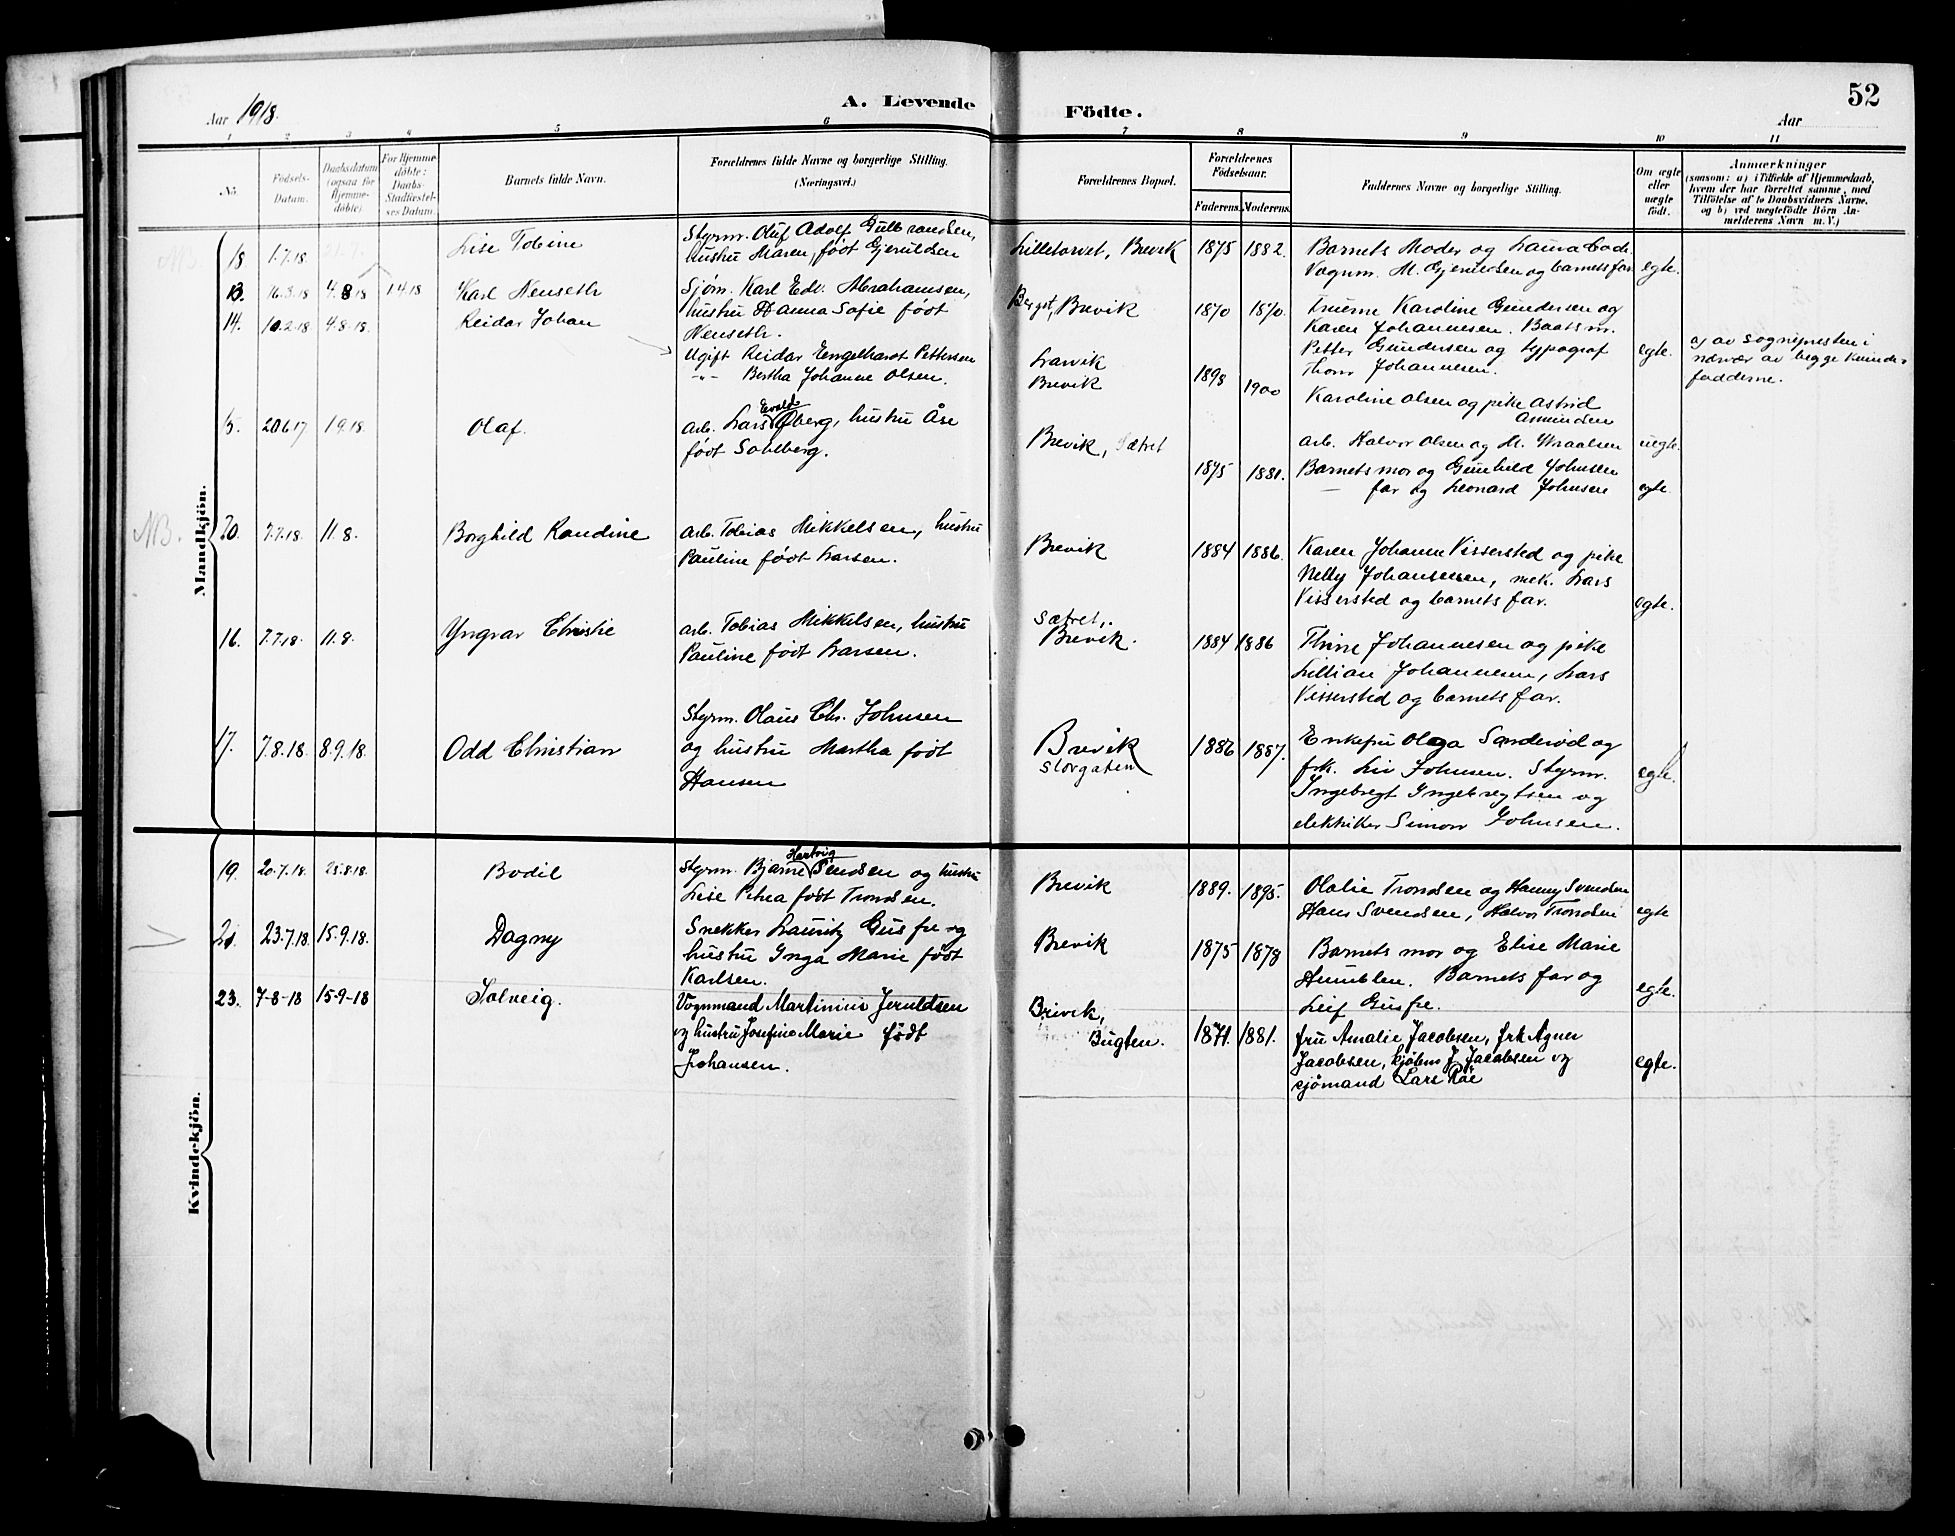 52
Aar 1918.
A. Levende
Födte.
Aar
1 2 3 4 5 6 7 8 9 10 11
No.
Födsels-
Datum.
Daabsdatum
(ogsaa for
Hjemme-
döbte).
For Hjemme-
döbte:
Daabs-
Stadfæstel-
ses Datum.
Barnets fulde Navn.
Forældrenes fulde Navne og borgerlige Stilling.
(Næringsvei.)
Forældrenes Bopæl.
Forældrenes
Födselsaar.
Faderens. Moderens.
Faddernes Navne og borgerlige Stilling.
Om ægte
eller
uægte
födt.
Anmærkninger
(saasom: a) i Tilfælde af Hjemmedaab,
hvem der har forrettet samme, med
Tilföielse af to Daabsvidners Navne,
og b) ved uægtefödte Börn An-
melderens Navn m. V.)
Mandkjön.
NB.
18 1.7.18 21.7. Lise Tobine
Styrm. Oluf Adolf Gulbrandsen,
hustru Maren, født Gjeruldsen
Lilletorvet, Brevik 1875 1882.
Barnets Moder og Laura
Vognm. M. Gjeruldsen og barnets far egte.
13. 16.3.18 4.8.18 1 4 18 Karl Nenseth
Sjøm. Karl Edv. Abrahamsen,
hustru Hanna Sofie født
Nenseth.
Berget, Brevik 1870 1870.
Fruerne Karoline Gundersen og
Karen Johannesen. Baatsm.
Petter Gundersen og typograf
Thorv Johannesen.
egte.
a) av sognepresten i
nærvær av begge kvinde-
fadderne.
14. 10.2.18 4.8.18. Reidar Johan
Ugift Reidar Engelhardt Pettersen
-"- Bertha Johanne Olsen.
Larvik
Brevik
1898 1900
Karoline Olsen og pike Astrid
Amundsen
arb. Halvor Olsen og M. Wraalsen uegte.
15. 20 6 17 1.9.18. Olaf.
arb. Lars Evald Øberg, hustru Åse
født Sohlberg.
Brevik, Sætret
1875 1881.
Barnets mor og Gunhild Johnsen
— far og Leonard Johnsen egte
NB. 20. 7.7.18. 11.8. Borghild Randine
arb. Tobias Mikkelsen, hustru
Pauline født Larsen.
Brevik 1884 1886.
Karen Johanne Vissersted og pike
Nelly Johannesen, mek. Lars
Vissersted og barnets far. egte.
16. 7.7.18 11.8. Yngvar Christie
arb. Tobias Mikkelsen, hustru
Pauline født Larsen.
Sætret,
Brevik. 1884 1886
Thine Johannesen og pike
Lillian Johannesen, Lars
Vissersted og barnets far.
17. 7.8.18 8.9.18. Odd Christian
Styrm. Olaus Chr. Johnsen
og hustru Martha født
Hansen
Brevik
Storgaten
1886 1887.
Enkefru Olga Sanderød og
frk. Liv Johnsen. Styrm.
Ingebregt Ingebregtsen og
elektriker Simon Johnsen.
egte.
Kvindekjön.
19. 20.7.18. 25.8.18. Bodil
Styrm. Bjarne Hartvig Svendsen og hustru
Lise Petrea født Trondsen.
Brevik 1889. 1895.
Olalie Trondsen og Hanny Svendsen
Hans Svendsen, Halvor Trondsen egte
21. 23.7.18. 15.9.18. Dagny
Snekker Lauritz Gusfre og
hustru Inga Marie født
Karlsen.
Brevik 1875 1878
Barnets mor og Elise Marie
Humblen. Barnets far og
Leif Gusfre.
egte.
23. 7-8-18 15-9-18 Solveig.
Vognmand Martinius Jeruldsen
og hustru Josefine Marie født
Johansen.
Brevik,
Bugten. 1871. 1881.
fru Amalie Jacobsen, frk Agnes
Jacobsen, kjøbm J. Jacobsen og
sjömand Lars Röe
egte.